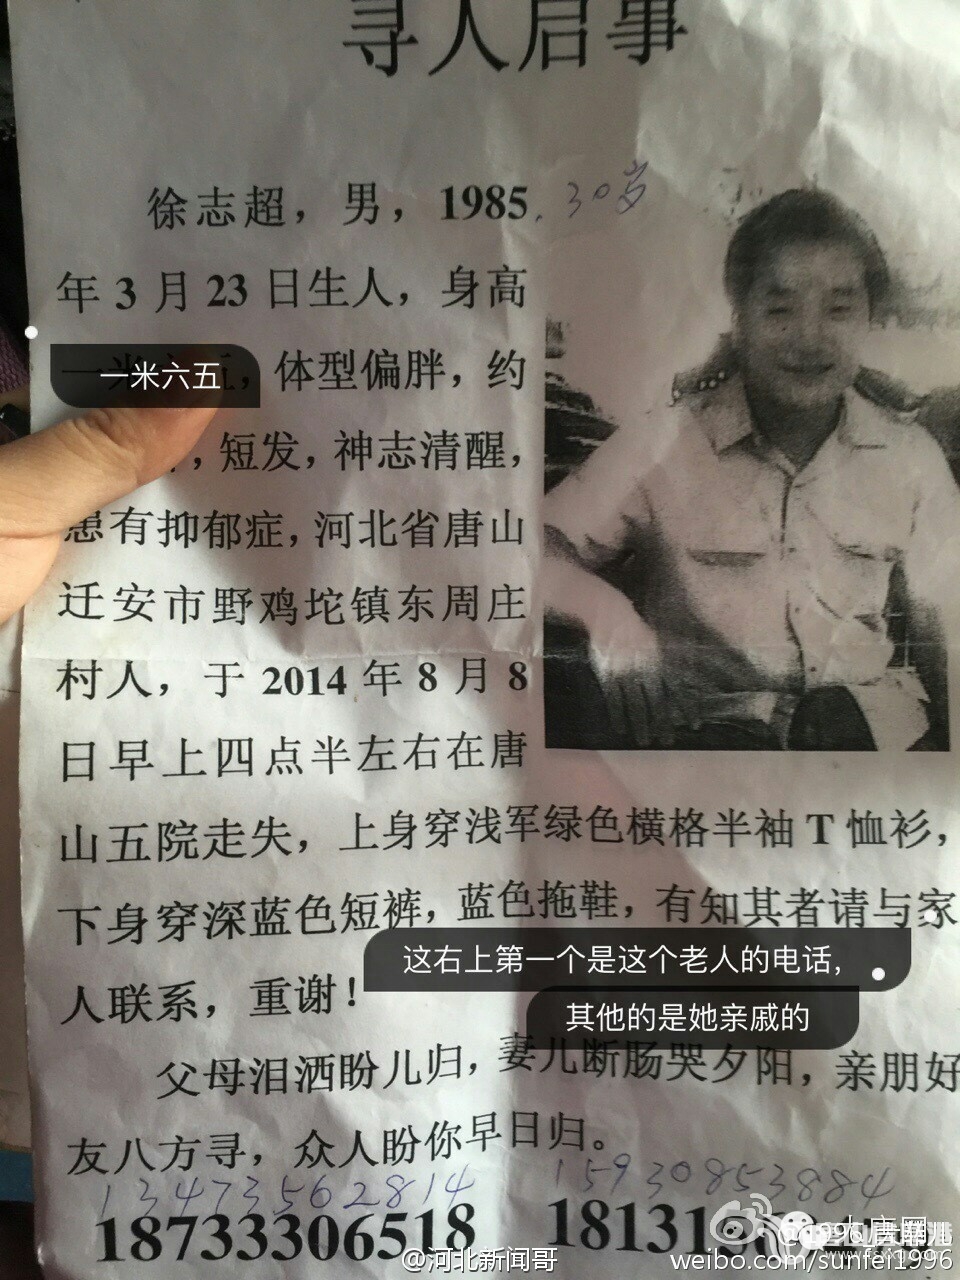 寻人启事
徐志超，男，1985.30岁
年3月23日生人，身高
一米六五，体型偏胖，约
，短发，神志清醒，
患有抑郁症，河北省唐山
迁安市野鸡坨镇东周庄
村人，于2014年8月8
日早上四点半左右在唐
山五院走失，上身穿浅军绿色横格半袖T恤衫，
下身穿深蓝色短裤，蓝色拖鞋，有知其者请与家
这右上第一个是这个老人的电话，
人联系，重谢！
其他的是她亲戚的
父母泪洒盼儿归，妻儿断肠哭夕阳，亲朋好
友八方寻，众人盼你早日归。
13473562814 15930853884
18733306518 181318
@河北新闻哥
weibo.com/sunfei1996